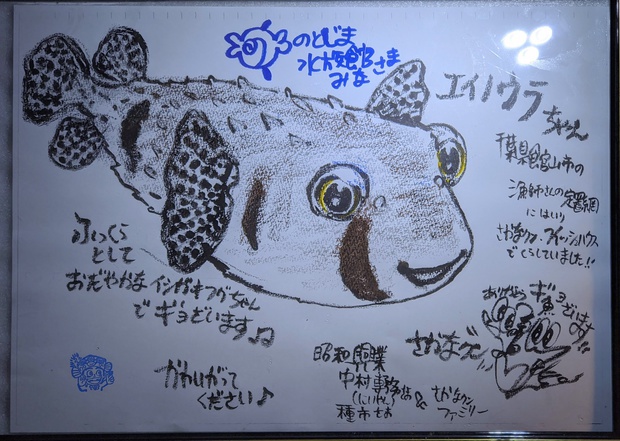 のとじま
水族館
みなさま
エイノウラ
ちゃん
千葉県館山市の
漁師さんの定置網
にはいり
さかなクン・フィッシュハウス
でくらしていました!!
ふっくら
として
おだやかな イシガキフグちゃん
でギョざいます♫
かわいがって
ください♪
ありがとう
ギョ
ざいます!!
さかなクン
昭和興業
中村専務さま
種市さま
&
さかなクン
ファミリー